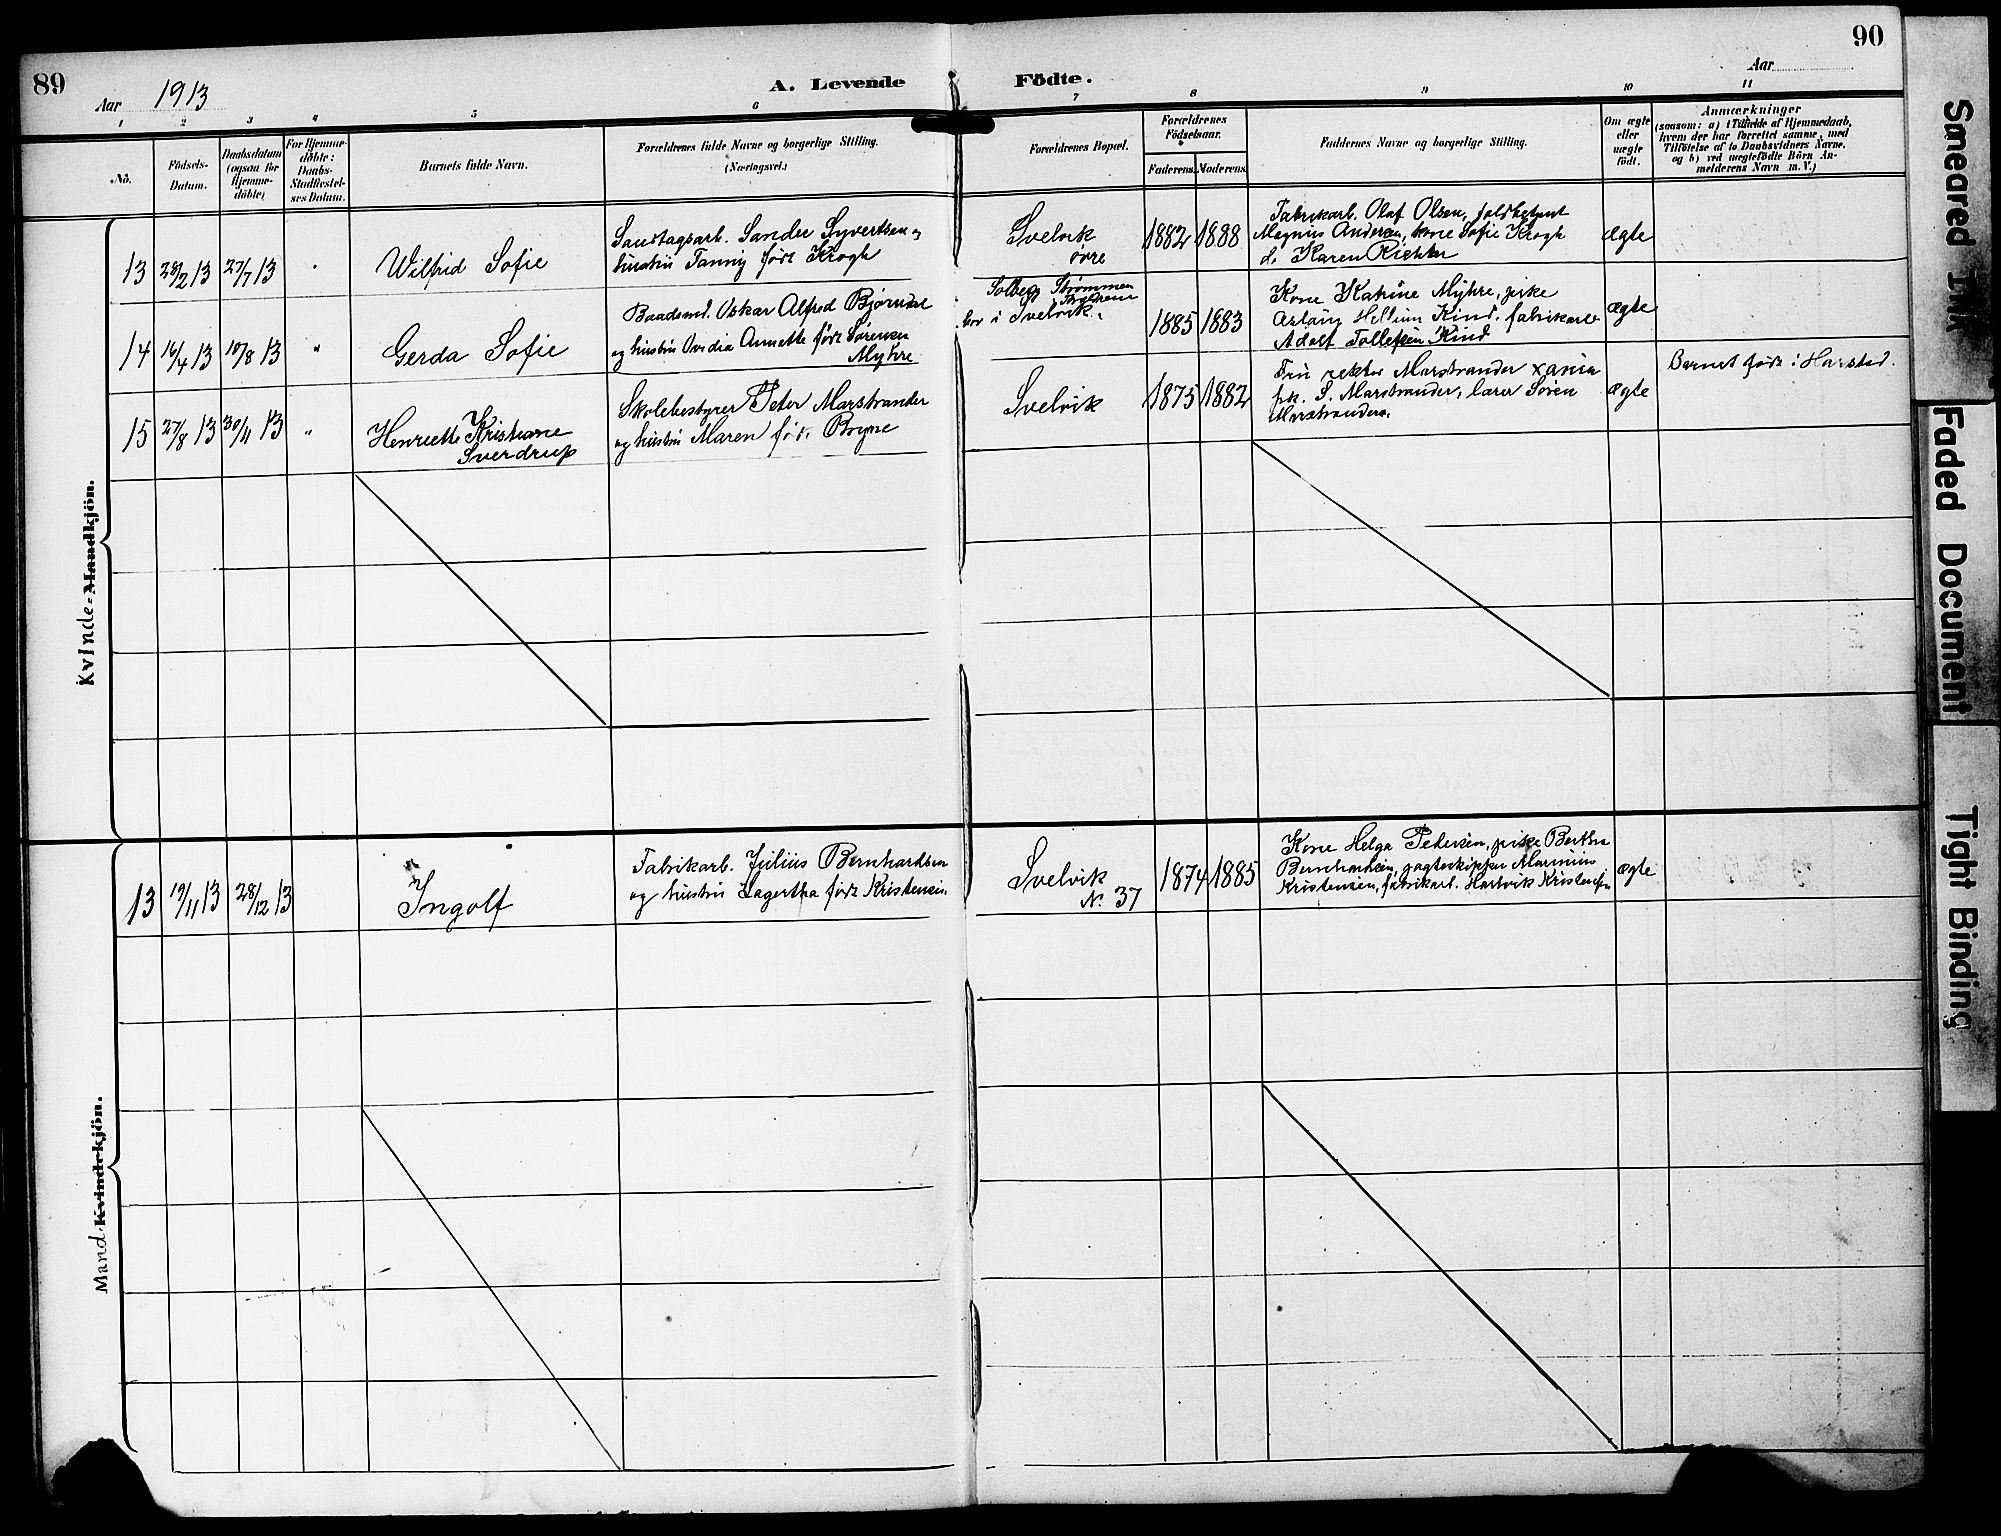 89
90
Aar 1913
A. Levende Födte.
Aar
1 2 3 4 5 6 7 8 9 10 11
No.
Födsels-
Datum.
Daabsdatum
(ogsaa for
Hjemme-
döbte)
For Hjemme-
döbte:
Daabs-
Stadfæstel-
ses Datum.
Barnets fulde Navn.
Forældrenes fulde Navne og borgerlige Stilling.
(Næringsvei.)
Forældrenes Bopæl.
Forældrenes
Födselsaar.
Faderens. Moderens.
Faddernes Navne og borgerlige Stilling.
Om ægte
eller
uægte
födt.
Anmærkninger
(saasom: a) i Tilfælde af Hjemmedaab,
hvem der har forrettet samme, med
Tilföielse af to Daabsvidners Navne,
og b) ved uægtefödte Börn An-
melderens Navn m. V.)
Kvinde-Mandkjön.
13 28/2 13 27/7 13
Wilfrid Sofie
Saustagsarb. Sander Syvertsen og
hustru Fanny født Krogh
Svelvik
øvre
1882 1888
Fabrikarb. Olaf Olsen,
Magnus Andersen, kone Sofie Krogh
d. Karen Richter
ægte
14 16/4 13 10/8 13 "
Gerda Sofie
Baadsmd. Oskar Alfred Bjørndal
og hustru Ovidia Annette født Sørensen
Myhre
Solberg Strømmen
bor i Svelvik.
1885 1883
Kone Katrine Myhre, pike
Aslaug Hellum Kind, fabrikarb
Adolf Tollefsen Kind
ægte
15 27/8 13 30/11 13 "
Henriette Kristiane
Sverdrup
Skolebestyrer Peter Marstrander
og hustru Maren født Bryne
Svelvik
1875 1882
Fru rektor Marstrander Xania
frk. S. Marstrander, lærer Søren
Marstrander.
ægte
Barnet født i Harstad.
Mand-Kvindekjön.
13 19/11 13 28/12 13
Ingolf
Fabrikarb. Julius Bernhardsen
og hustru Lagertha født Kristensen
Svelvik
No. 37
1874 1885
Kone Helga Pedersen, pike Bertha
Bernhardsen, jagteskipper Marinius
Kristensen, fabrikarb. Hartvik Kristensen
ægte
Smeared Ink
Faded Document
Tight Binding